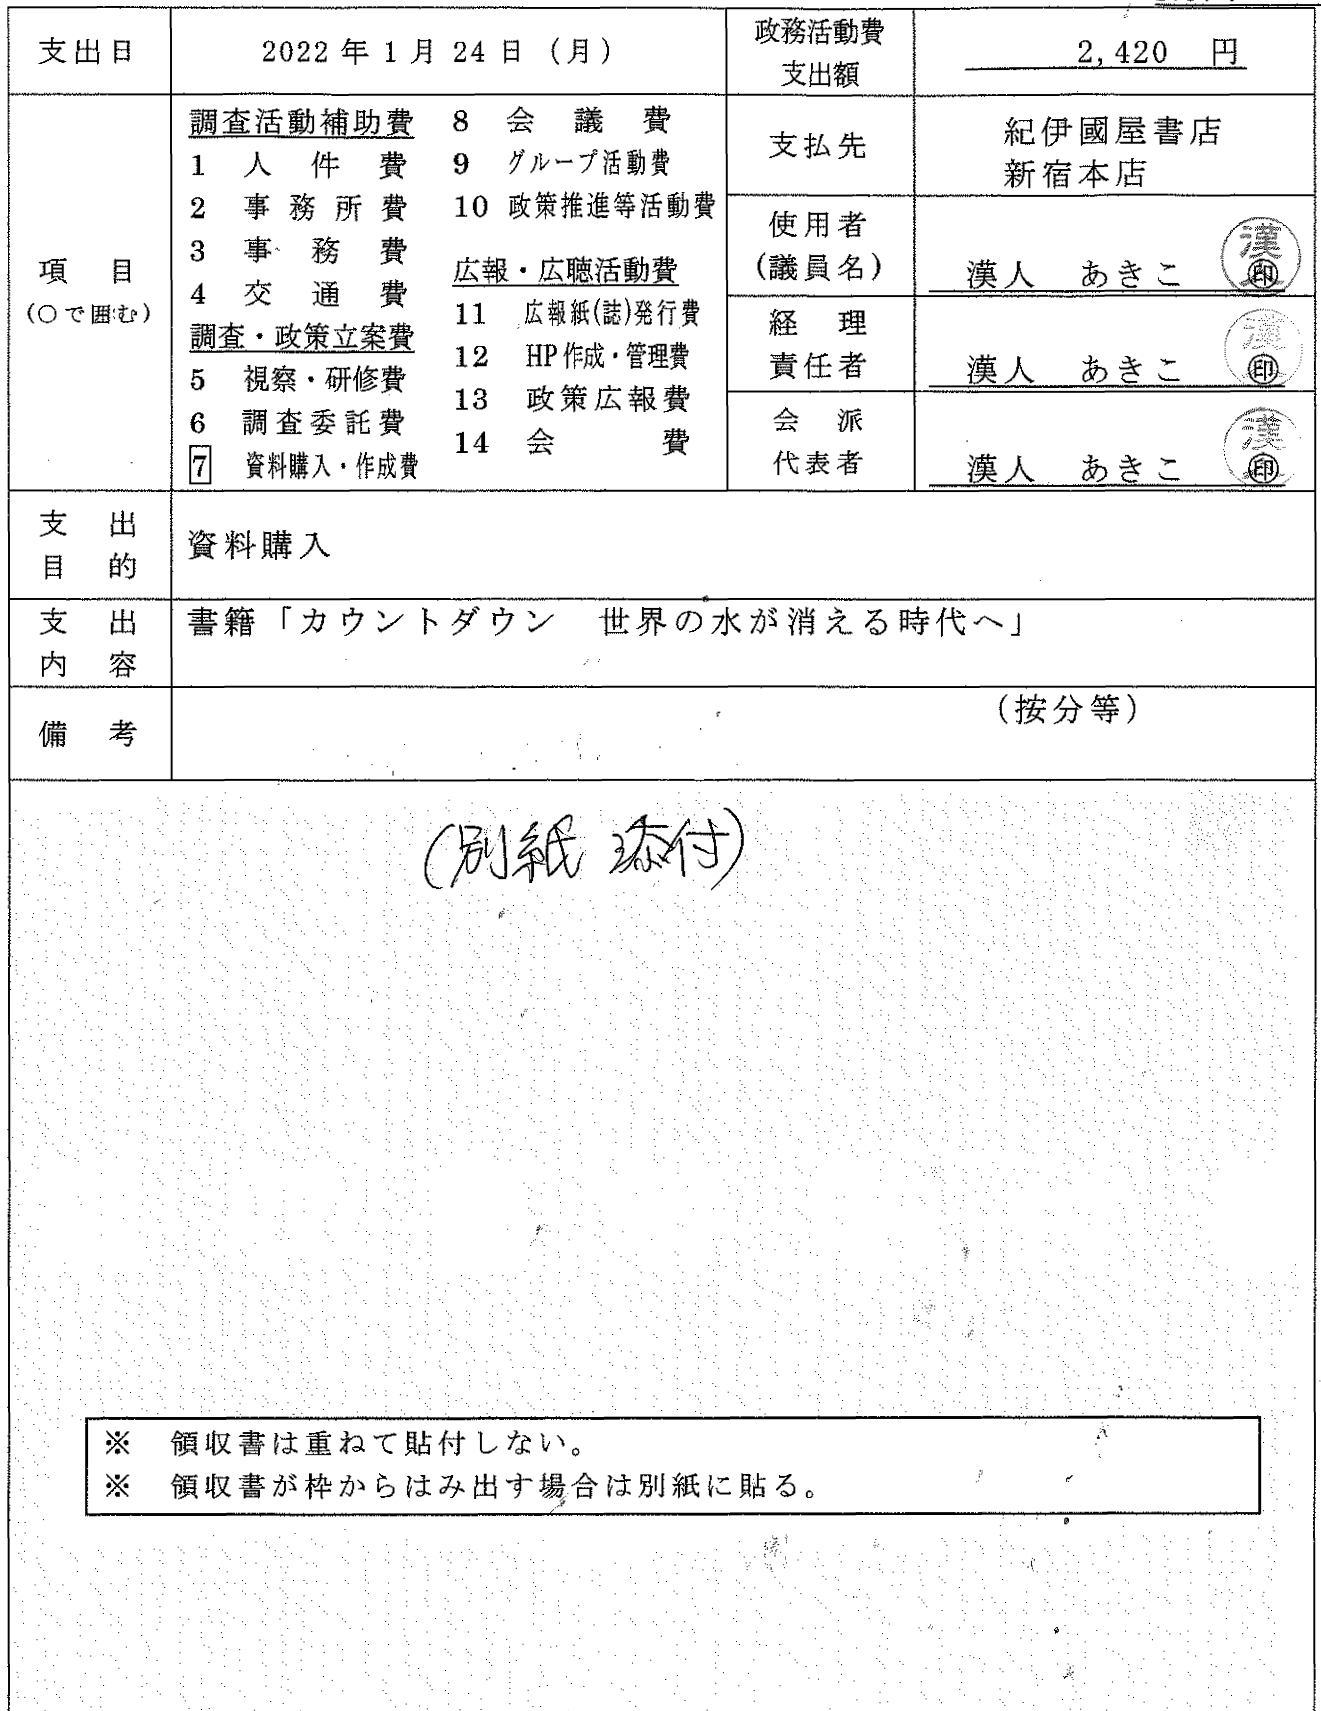 支出日 2022年1月24日(月) 政務活動費
支出額 2,420 円
項 目
(○で囲む)
調査活動補助費
1 人件費
2 事務所費
3 事務費
4 交通費
調査・政策立案費
5 視察・研修費
6 調査委託費
7 資料購入・作成費
8 会議費
9 グループ活動費
10 政策推進等活動費
広報・広聴活動費
11 広報紙(誌)発行費
12 HP作成・管理費
13 政策広報費
14 会費
支払先 紀伊國屋書店
新宿本店
使用者
(議員名) 漢人 あきこ ㊞
経理
責任者 漢人 あきこ ㊞
会派
代表者 漢人 あきこ ㊞
支出
目的 資料購入
支出
内容 書籍「カウントダウン 世界の水が消える時代へ」
備考 (按分等)
(別紙 添付)
※ 領収書は重ねて貼付しない。
※ 領収書が枠からはみ出す場合は別紙に貼る。